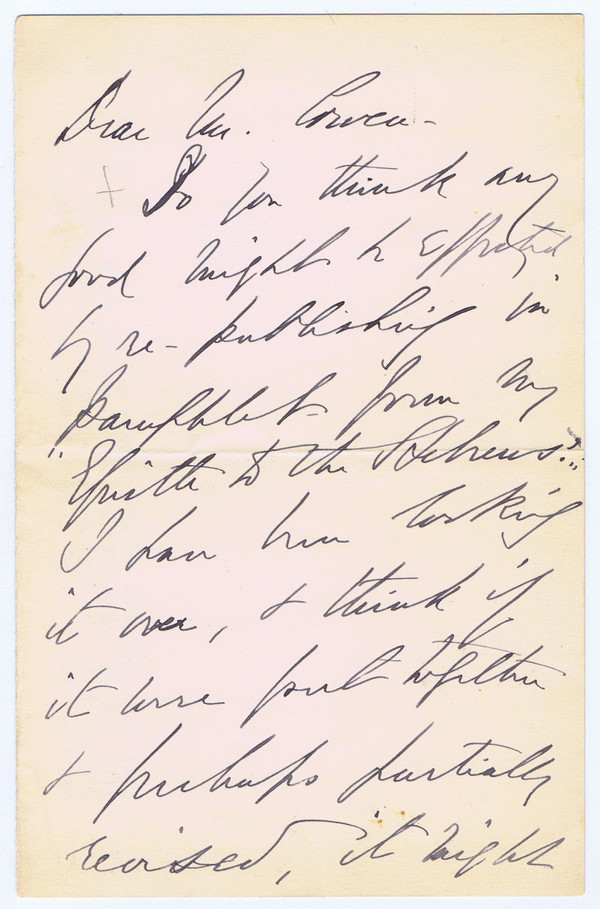 Dear Mr. Cowen -
Do you think any
good might be effected
by re-publishing in
pamphlet form my
"Epistle to the Hebrews."
I have been looking
it over, & think if
it were put together
& perhaps partially
revised, it might